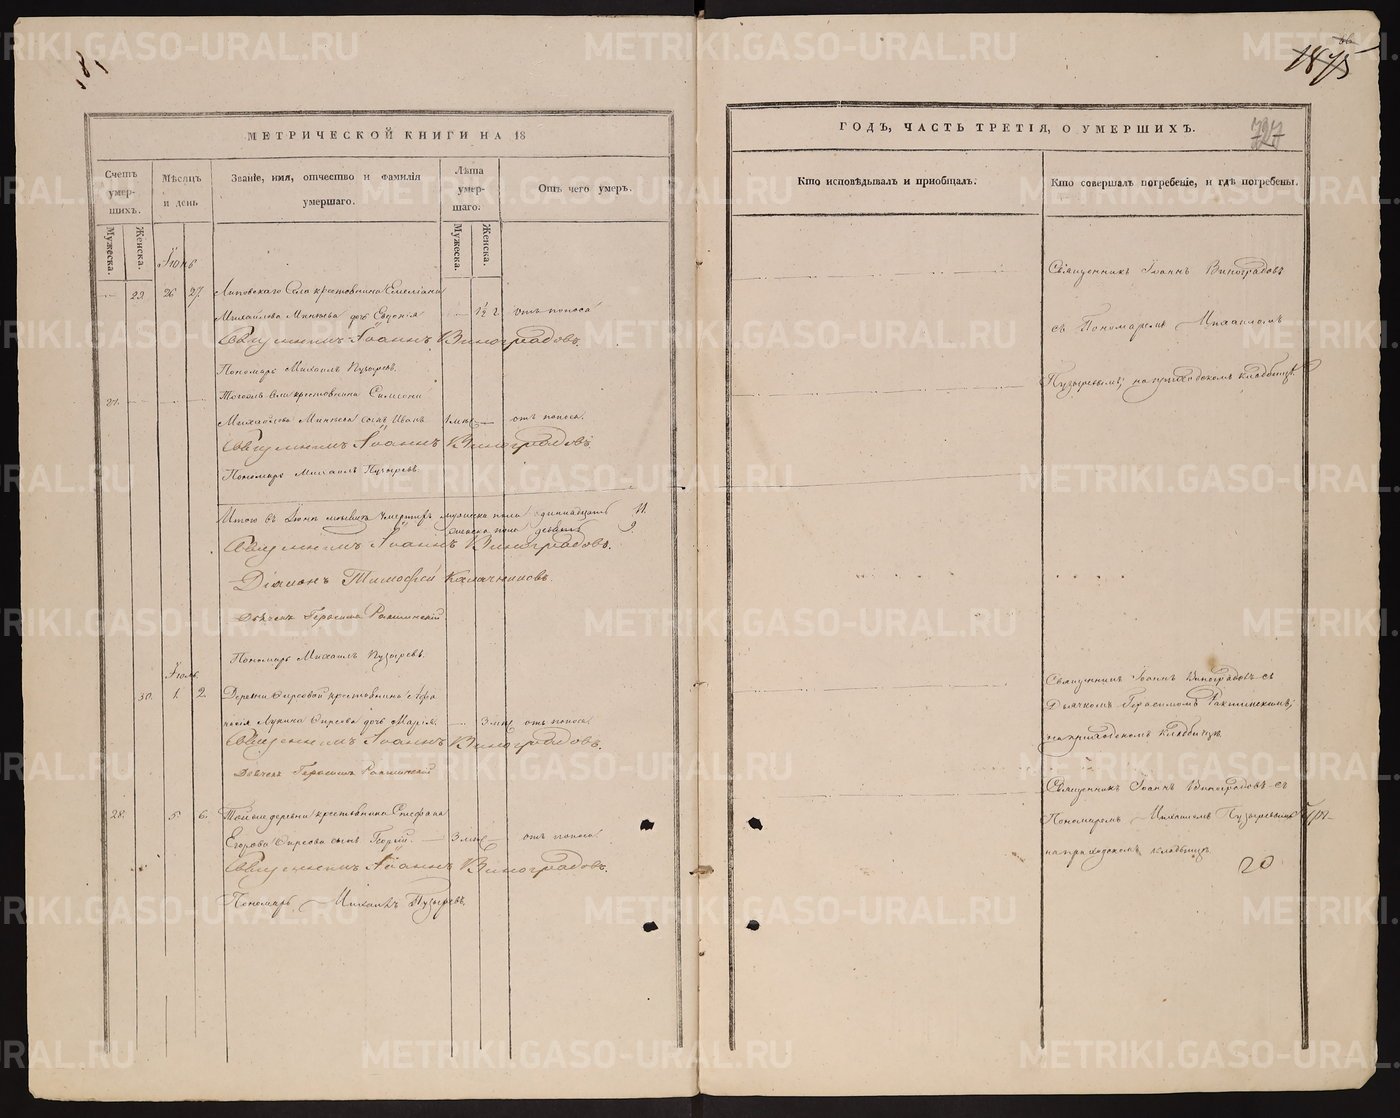 181
1875
66
727
МЕТРИЧЕСКОЙ КНИГИ НА 18
ГОДЪ, ЧАСТЬ ТРЕТІЯ, О УМЕРШИХЪ.
Счетъ умерших.
Мѣсяцъ и день
Званіе, имя, отчество и фамилія умершаго.
Лѣта умершаго.
Отъ чего умеръ.
Кто исповѣдывалъ и пріобщалъ.
Кто совершалъ погребеніе, и гдѣ погребены.
Мужеска.
Женска.
Мужеска.
Женска.
Іюнь
29. 26 27. Липовскаго Села крестьянина Емеліана
Михайлова Минѣева дочь Евдокія — 1½ г. отъ поноса
Священникъ Іоаннъ Виноградовъ.
Пономарь Михаилъ Пузыревъ.
Священникъ Іоаннъ Виноградовъ
съ Пономаремъ Михаиломъ
Пузыревымъ, на приходскомъ кладбищѣ.
27. Тогоже села крестьянина Симеона
Михайлова Минѣева сынъ Иванъ 1 мѣс — отъ поноса.
Священникъ Іоаннъ Виноградовъ
Пономарь Михаилъ Пузыревъ.
Итого въ Іюнѣ мѣсяцѣ умершихъ мужеска пола одиннадцать 11.
женска пола девять 9.
Священникъ Іоаннъ Виноградовъ.
Діаконъ Тимофей Калачниковъ.
Дьячекъ Герасимъ Ракшинскій
Пономарь Михаилъ Пузыревъ.
Іюль.
30. 1. 2. Деревни Фирсовой крестьянина Афа
насія Лукина Фирсова дочь Марія. — 3 мѣс отъ поноса.
Священникъ Іоаннъ Виноградовъ.
Дьячекъ Герасимъ Ракшинскій
Священникъ Іоаннъ Виноградовъ съ
Дьячкомъ Герасимомъ Ракшинскимъ,
на приходскомъ кладбищѣ.
28. 5. 6. Тойже деревни крестьянина Епифана
Егорова Фирсова сынъ Георгій. — 3 мѣс — отъ поноса.
Священникъ Іоаннъ Виноградовъ.
Пономарь Михаилъ Пузыревъ.
Священникъ Іоаннъ Виноградовъ съ
Пономаремъ Михаиломъ Пузыревымъ
на приходскомъ кладбищѣ.
20
METRIKI.GASO-URAL.RU